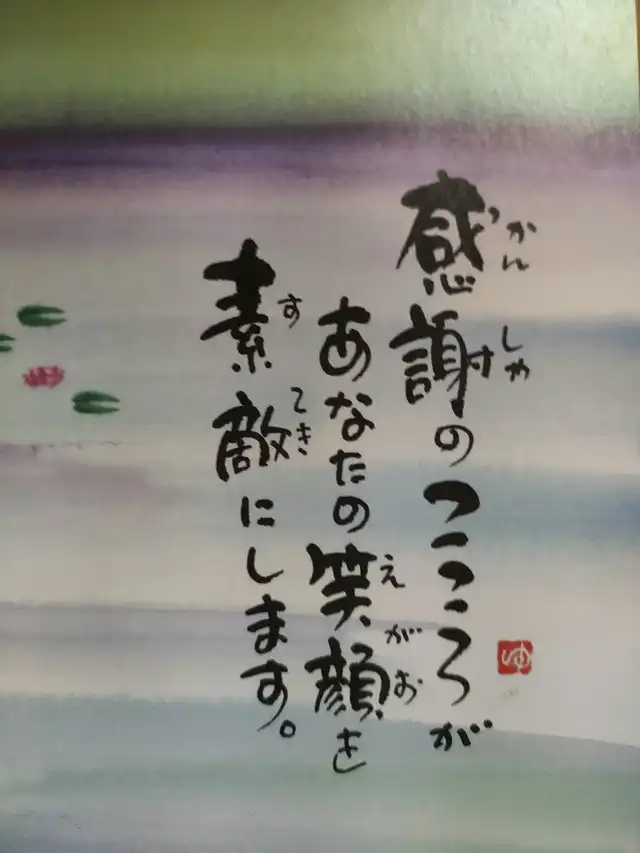 感謝のこころが
かんしゃ
あなたの笑顔を
えがお
素敵にします。
すてき
ゆ